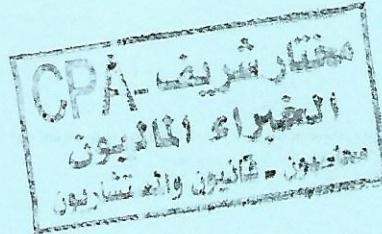 مختار شريف - CPA
الخبراء الماليون
محاسبون - قانونيون واستشاريون